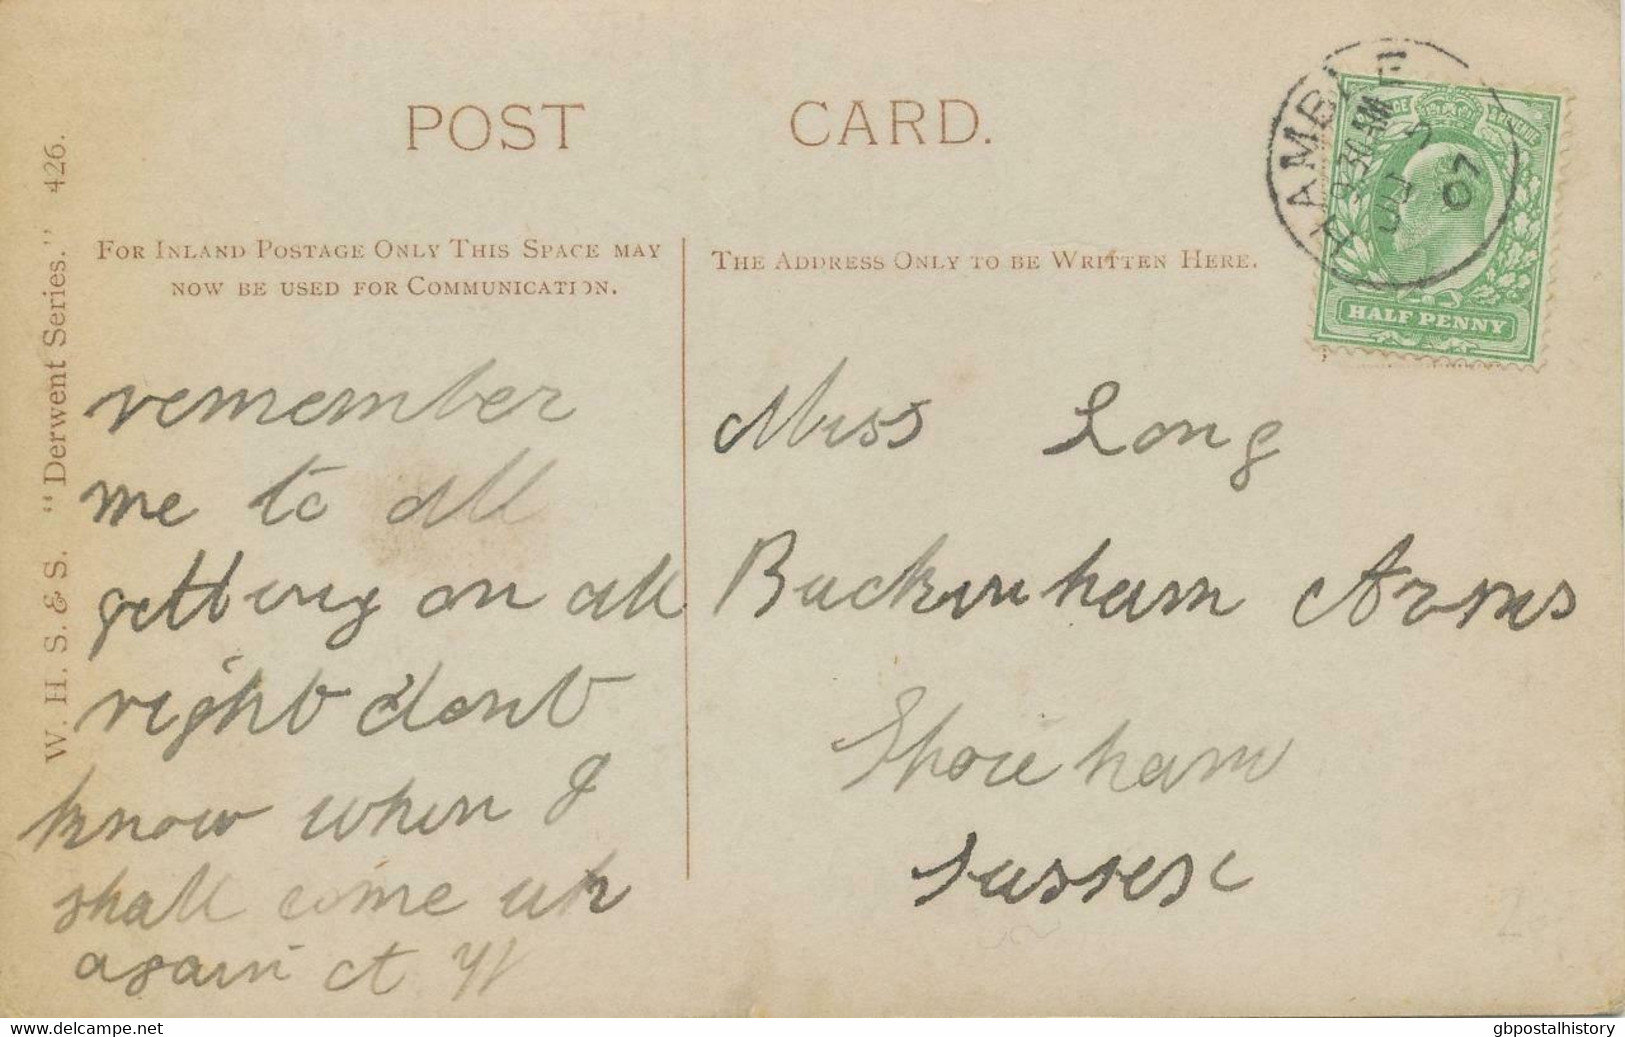 POST CARD.
W. H. S. & S. "Derwent Series." 426.
FOR INLAND POSTAGE ONLY THIS SPACE MAY
NOW BE USED FOR COMMUNICATION.
THE ADDRESS ONLY TO BE WRITTEN HERE.
HAMBLE
9.30 AM
07
HALF PENNY
remember
me to all
getting on all
right dont
know when I
shall come up
again
Miss Long
Buckinham Arms
Shoreham
Sussex
www.delcampe.net
gbpostalhistory